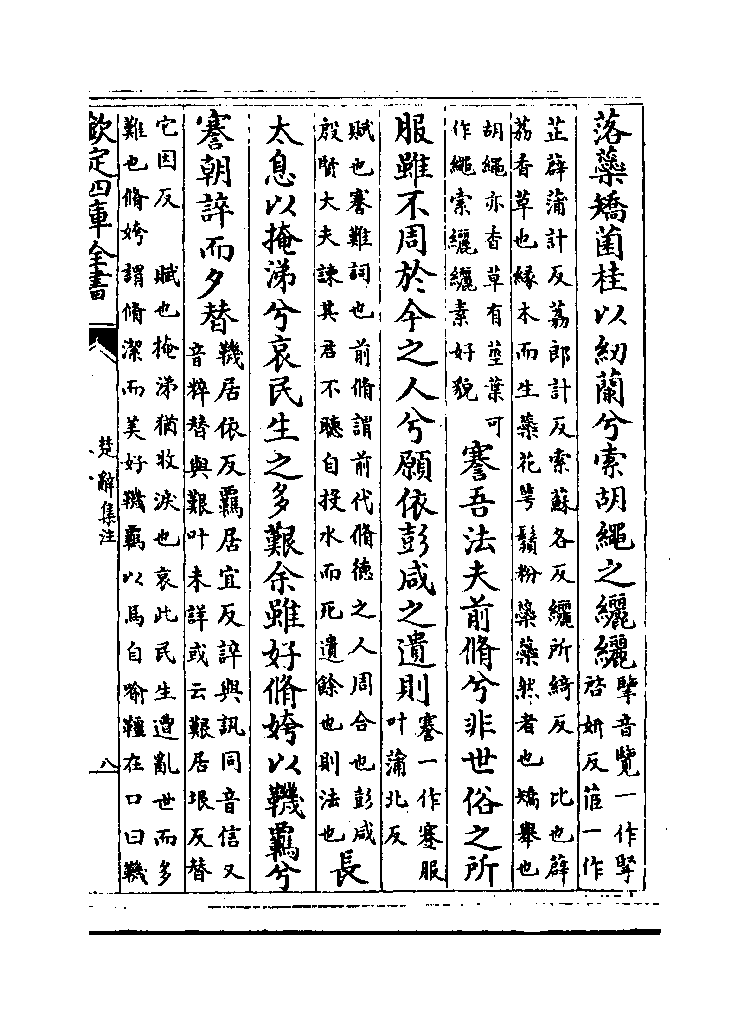 落蘂矯菌桂以紉蘭兮索胡繩之纚纚
擥音覽一作掔
啓妍反茝一作
芷薜蒲計反荔郎計反索蘇各反纚所綺反　比也薜
荔香草也緣木而生蘂花蕚鬚粉蘂蘂然者也矯舉也
胡繩亦香草有莖葉可
作繩索纚纚索好貌
謇吾法夫前脩兮非世俗之所
服雖不周於今之人兮願依彭咸之遺則
謇一作蹇服
叶蒲北反
賦也謇難詞也前脩謂前代脩徳之人周合也彭咸
殷賢大夫諫其君不聽自投水而死遺餘也則法也
長
太息以掩涕兮哀民生之多艱余雖好脩姱以鞿羈兮
謇朝誶而夕替
鞿居依反羈居宜反誶與訊同音信又
音粹替與艱叶未詳或云艱居垠反替
它因反　賦也掩涕猶收淚也哀此民生遭亂世而多
難也脩姱謂脩潔而美好鞿羈以馬自喻韁在口曰鞿
欽定四庫全書
楚辭集注
八